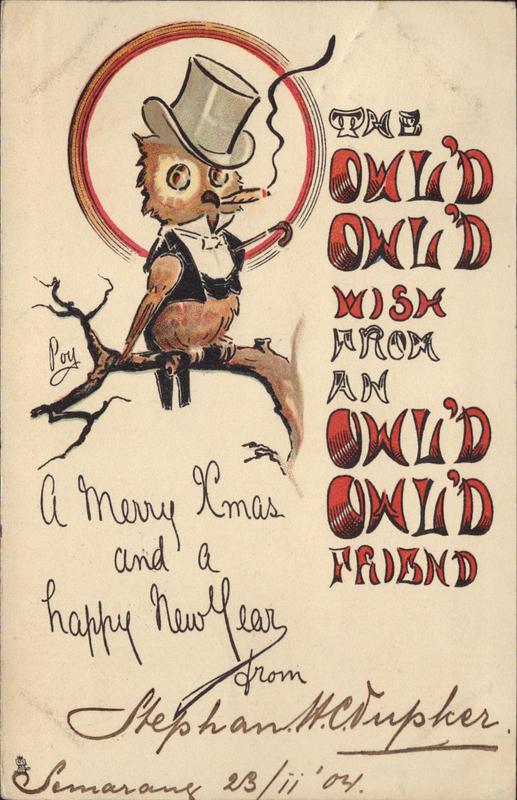 THE
OWL'D
OWL'D
WISH
FROM
AN
OWL'D
OWL'D
FRIEND
Poy
A Merry Xmas
and a
happy New Year
from
Stephan. H. C. Dupker.
Semarang 23/11 '04.